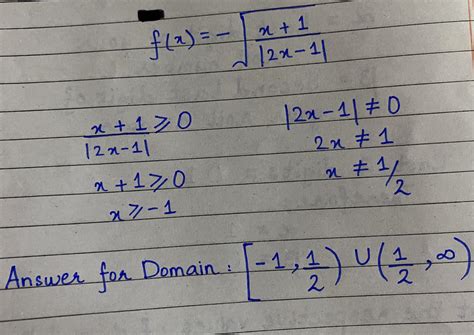 f(x) = - √((x + 1)/|2x - 1|)
(x + 1)/|2x - 1| ≥ 0
x + 1 ≥ 0
x ≥ -1
|2x - 1| ≠ 0
2x ≠ 1
x ≠ 1/2
Answer for Domain : [-1, 1/2) ∪ (1/2, ∞)